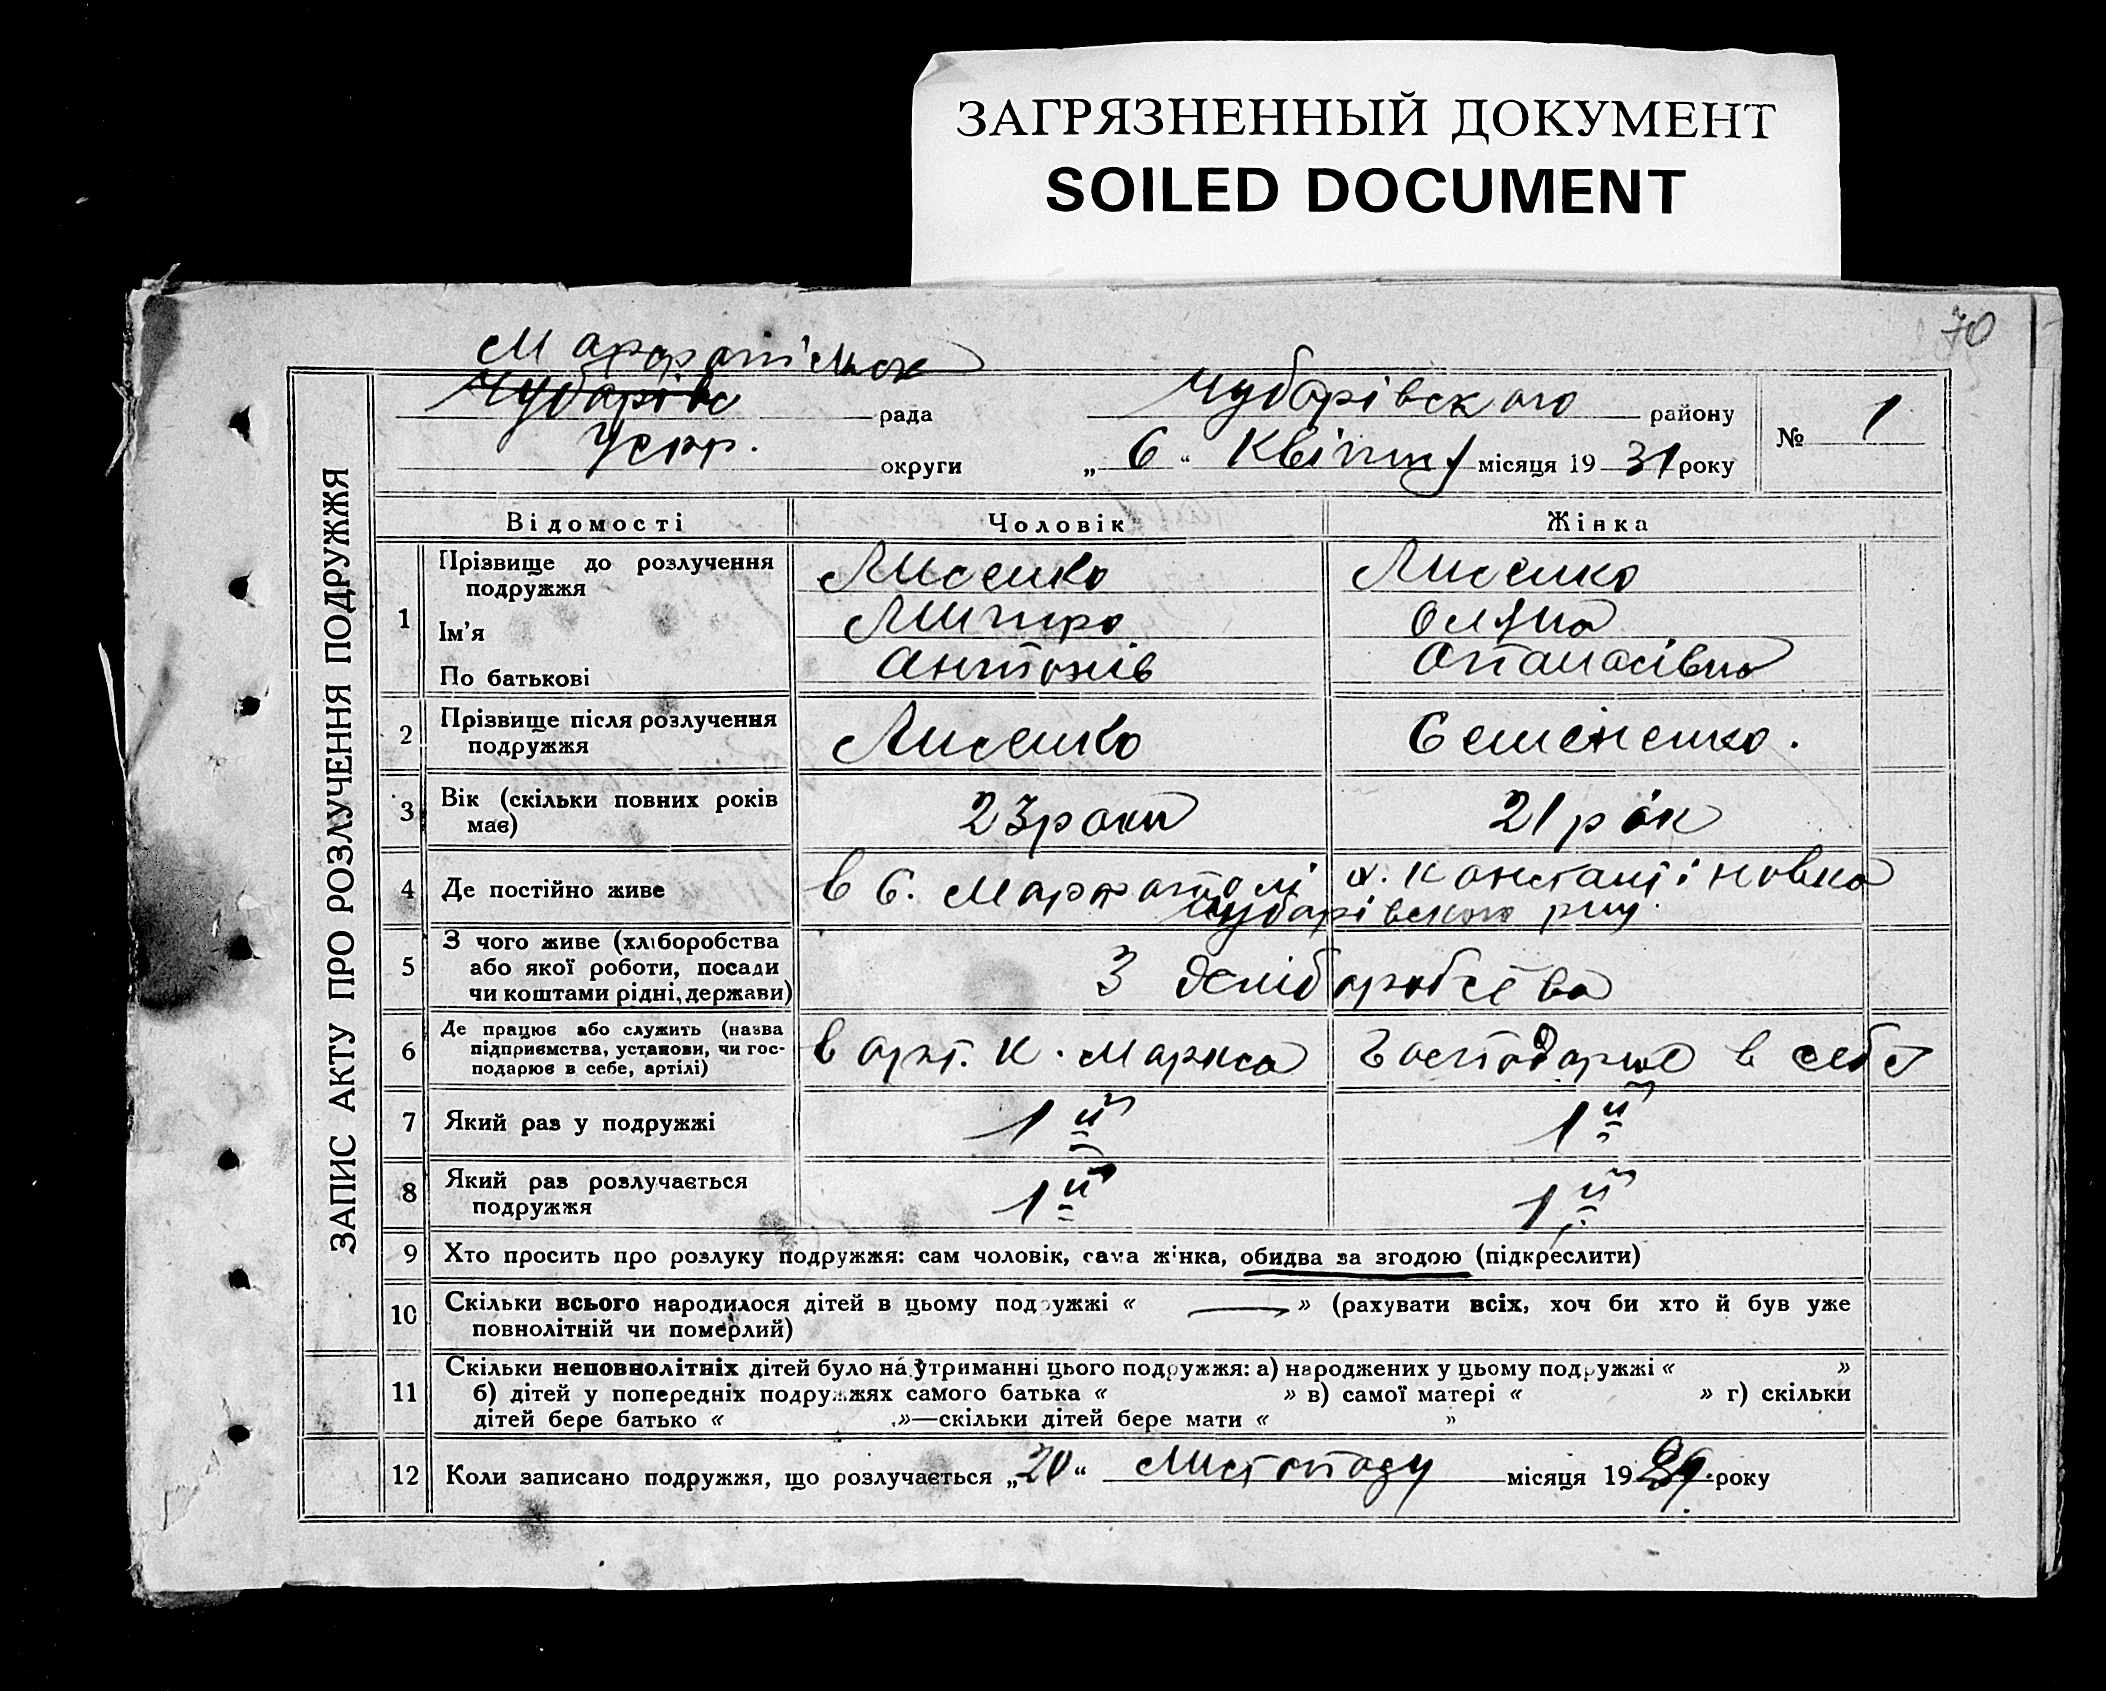 ЗАГРЯЗНЕННЫЙ ДОКУМЕНТ
SOILED DOCUMENT
70
ЗАПИС АКТУ ПРО РОЗЛУЧЕННЯ ПОДРУЖЖЯ
Марфопільск
Чубарівс рада Чубарівского району № 1
УСРР. округи „ 6 “ Квітня місяця 19 31 року
Відомості Чоловік Жінка
1 Прізвище до розлучення подружжя Лисенко Лисенко
Ім'я Митро Оляна
По батькові Антонів Опанасівна
2 Прізвище після розлучення подружжя Лисенко Семененко.
3 Вік (скільки повних років має) 23 роки 21 рок
4 Де постійно живе в с. Марфополі х. Константіновка
Чубарівского рну.
5 З чого живе (хліборобства або якої роботи, посади чи коштами рідні, держави) З хліборобства
6 Де працює або служить (назва підприємства, установи, чи господарює в себе, артілі) в арт. К. Маркса Господарює в себе
7 Який раз у подружжі 1й 1й
8 Який раз розлучається подружжя 1й 1й
9 Хто просить про розлуку подружжя: сам чоловік, сама жінка, обидва за згодою (підкреслити)
10 Скільки всього народилося дітей в цьому подружжі « — » (рахувати всіх, хоч би хто й був уже
повнолітній чи померлий)
11 Скільки неповнолітніх дітей було на утриманні цього подружжя: а) народжених у цьому подружжі « »
б) дітей у попередніх подружжях самого батька « » в) самої матері « » г) скільки
дітей бере батько « »—скільки дітей бере мати « »
12 Коли записано подружжя, що розлучається „20“ Листопаду місяця 1929 року